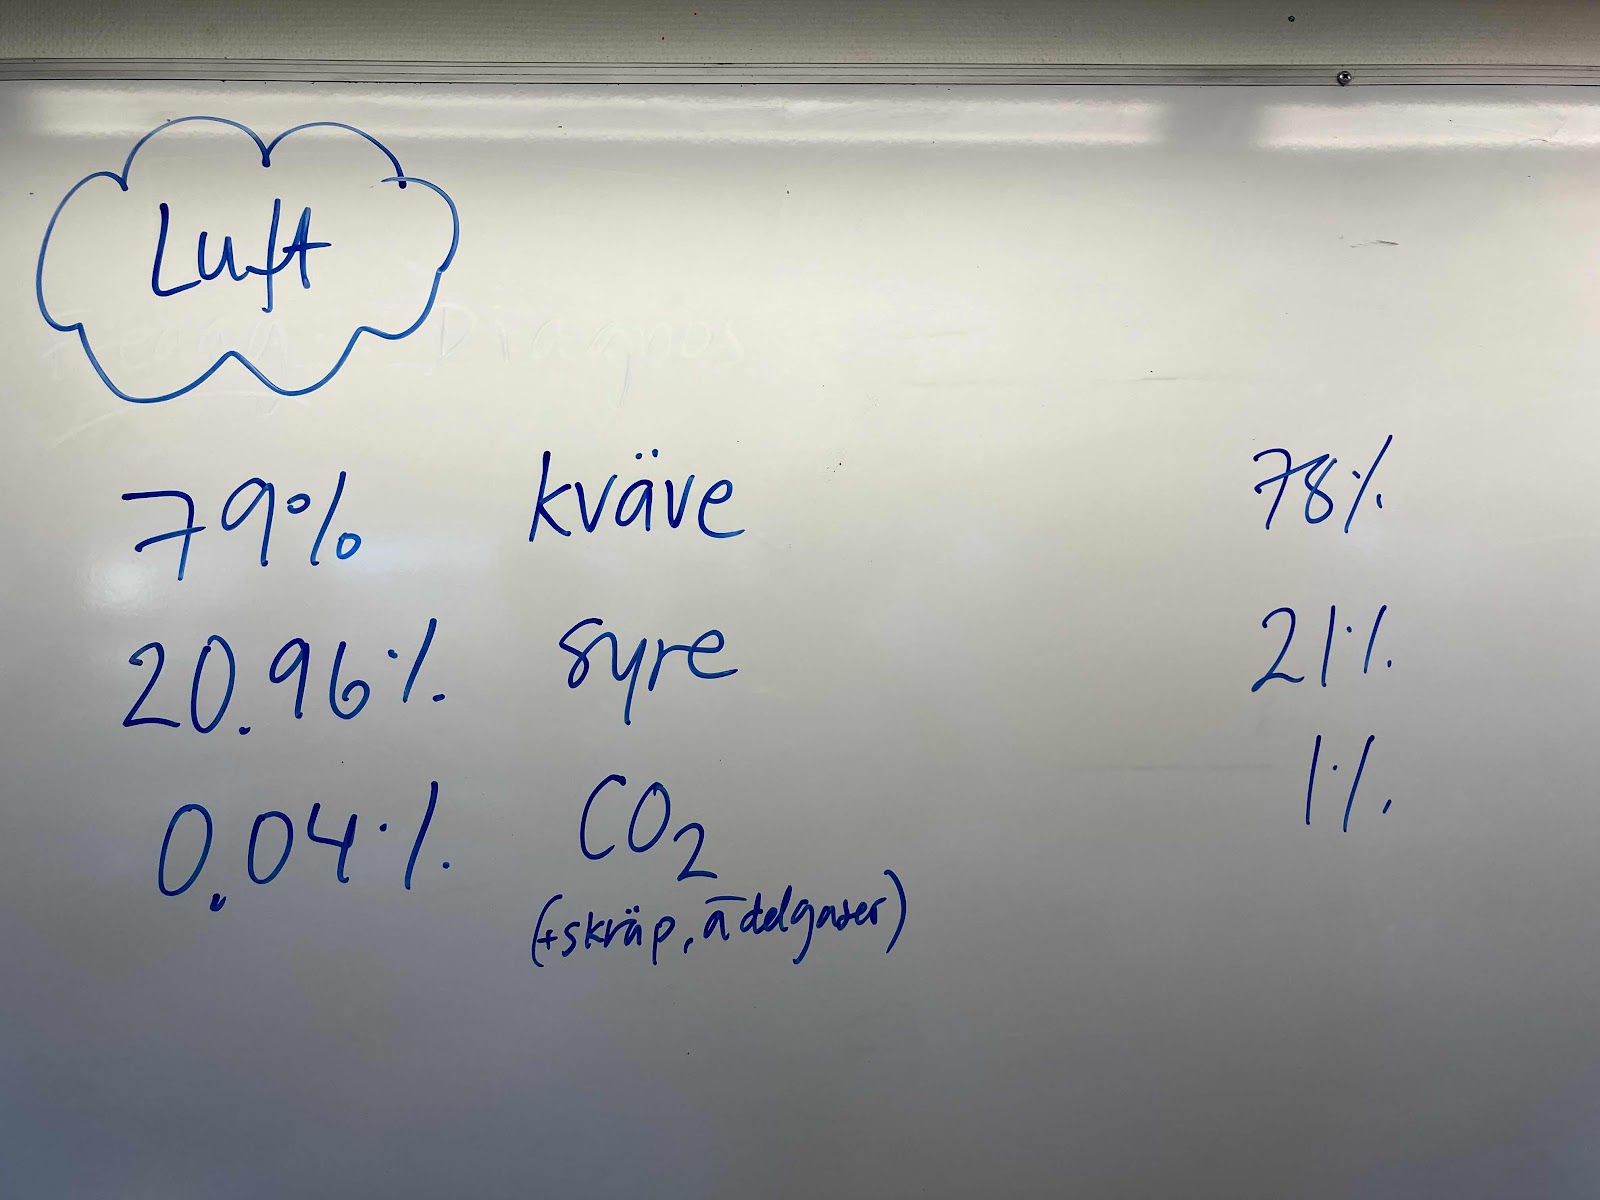 Luft
79% kväve 78%
20.96% syre 21%
0.04% CO₂ 1%
(+skräp, ädelgaser)